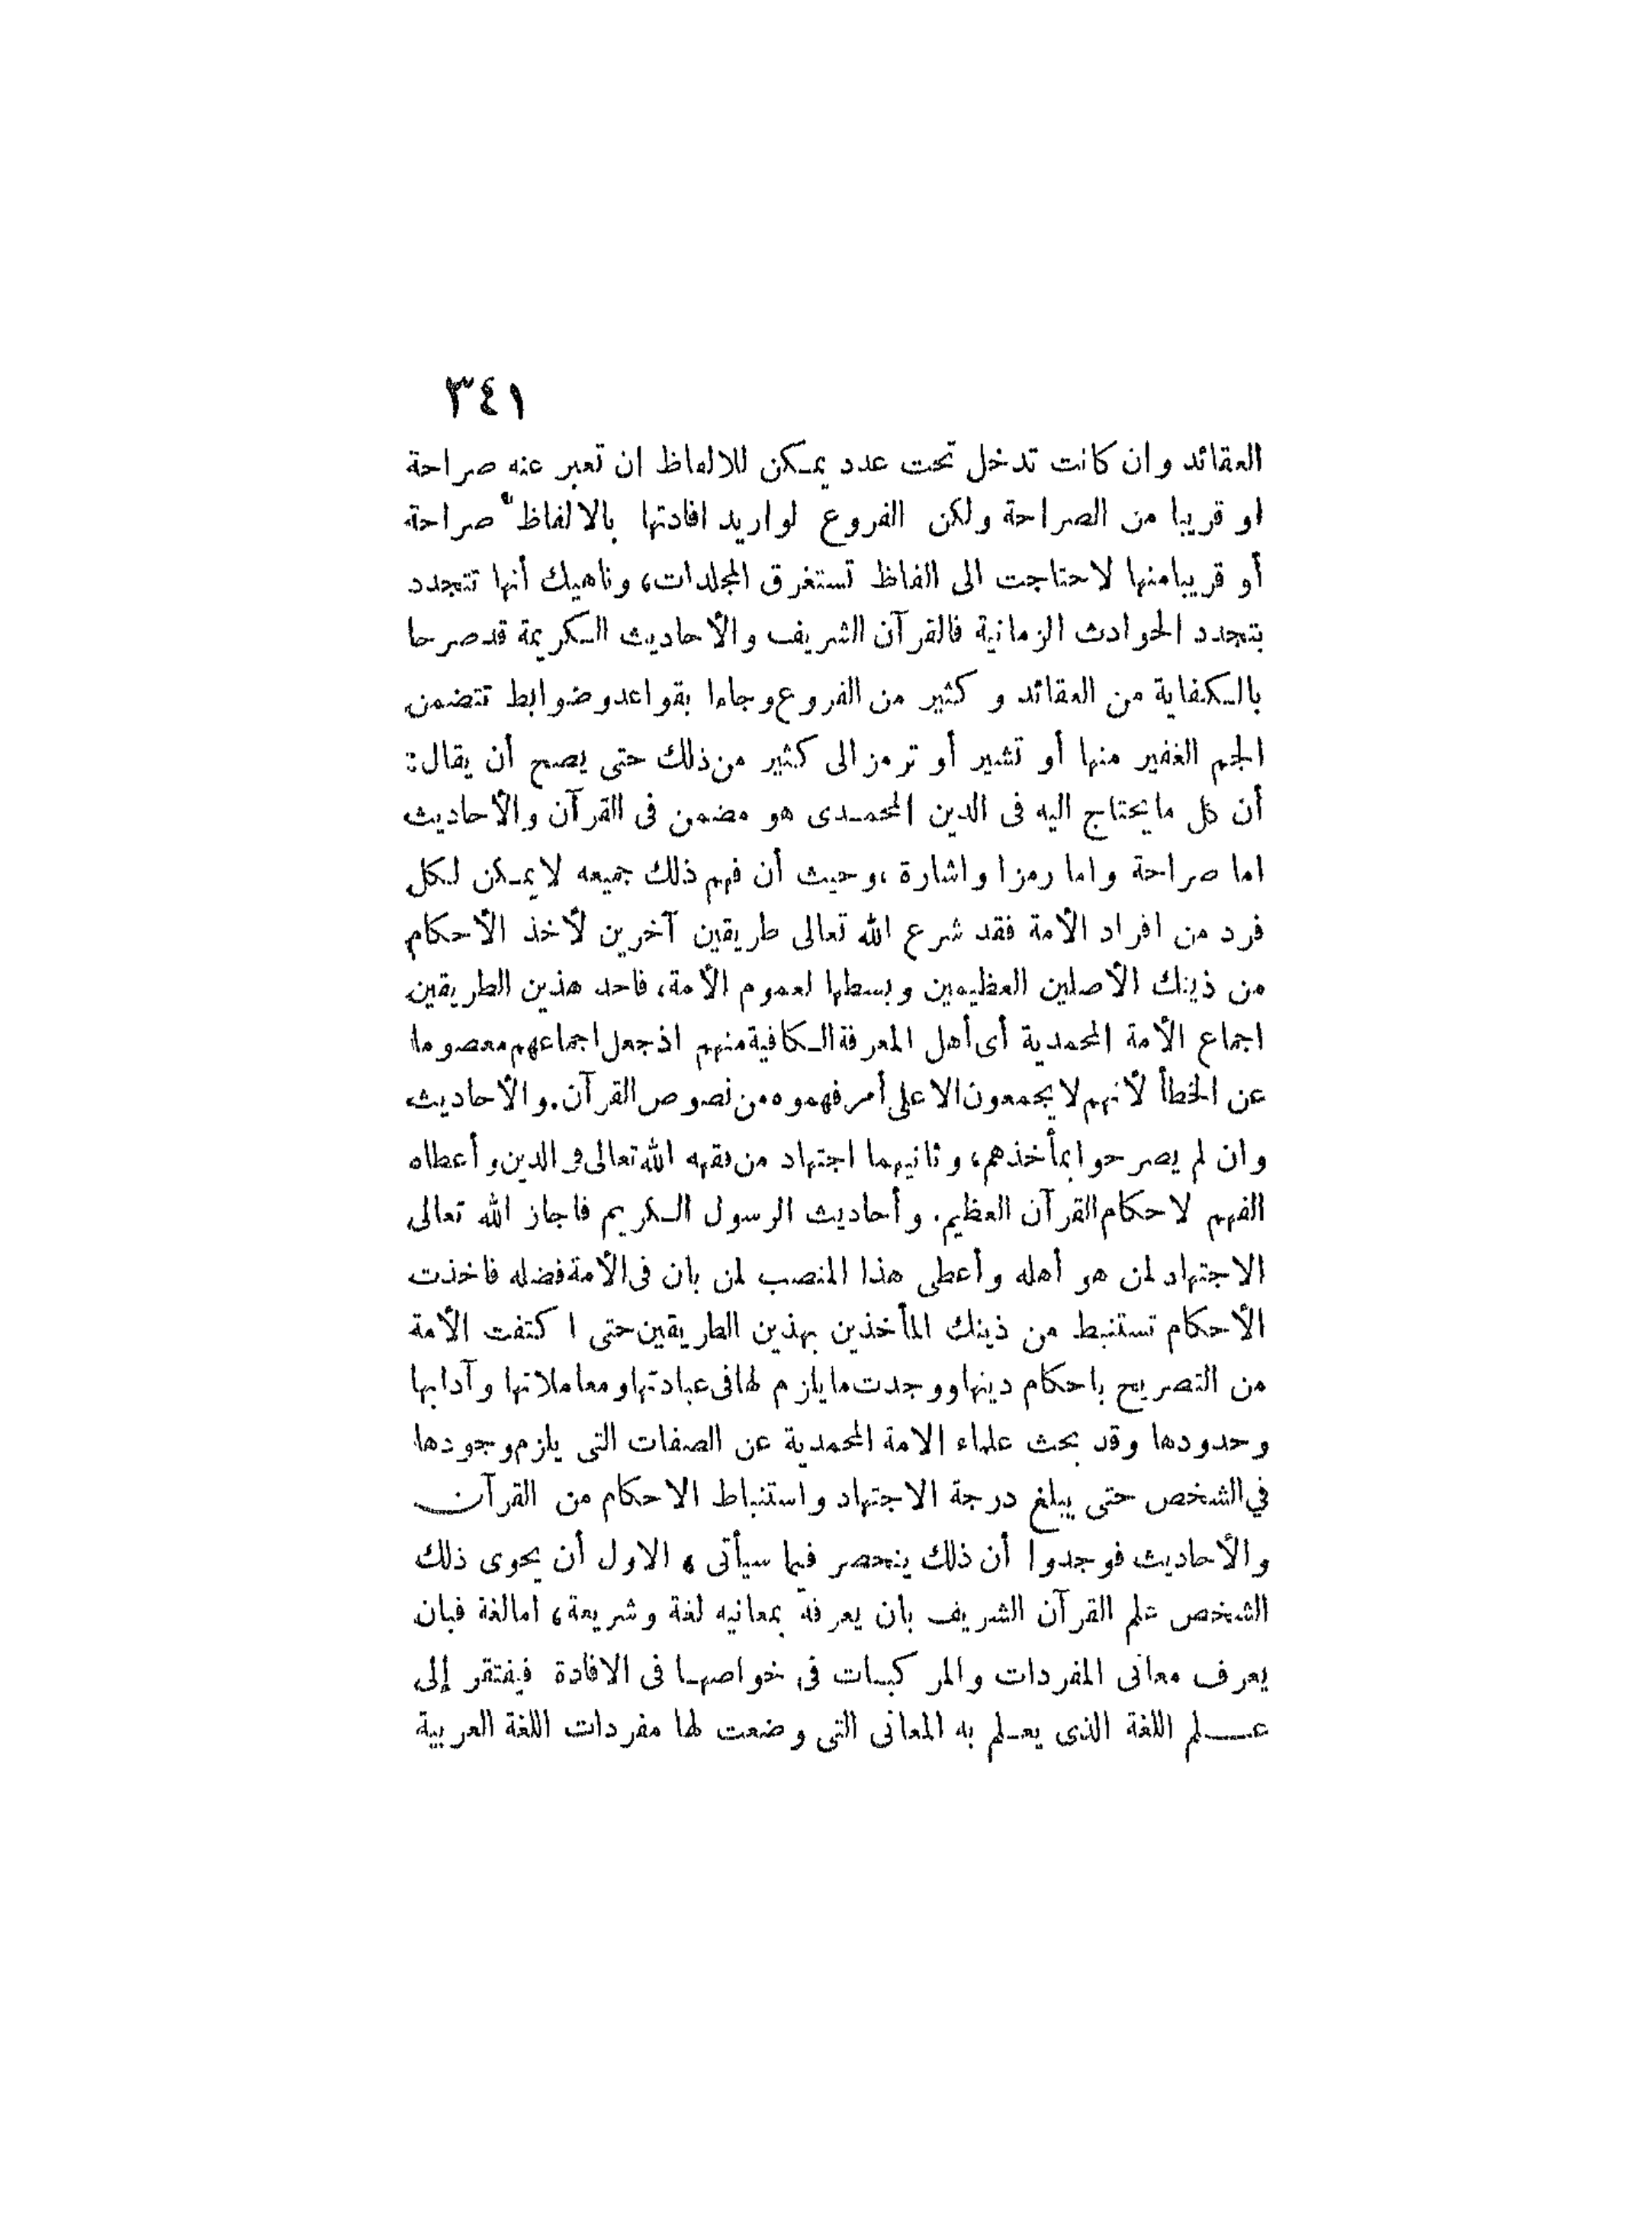 ٣٤١
العقائد وان كانت تدخل تحت عدد يمكن للالفاظ ان تعبر عنه صراحة
او قريبا من الصراحة ولكن الفروع لو اريد افادتها بالالفاظ صراحة
أو قريبا منها لاحتاجت الى الفاظ تستغرق المجلدات، وناهيك أنها تتجدد
بتجدد الحوادث الزمانية فالقرآن الشريف والأحاديث الكريمة قد صرحا
بالكفاية من العقائد و كثير من الفروع وجاءا بقواعد وضوابط تتضمن
الجم الغفير منها أو تشير أو ترمز الى كثير من ذلك حتى يصح أن يقال:
أن كل ما يحتاج اليه فى الدين المحمدى هو مضمن فى القرآن والأحاديث
اما صراحة واما رمزا واشارة ،وحيث أن فهم ذلك جميعه لا يمكن لكل
فرد من افراد الأمة فقد شرع الله تعالى طريقين آخرين لأخذ الأحكام
من ذينك الأصلين العظيمين وبسطها لعموم الأمة، فاحد هذين الطريقين
اجماع الأمة المحمدية أى أهل المعرفة الكافية منهم اذ جعل اجماعهم معصوما
عن الخطأ لأنهم لا يجمعون الا على أمر فهموه من نصوص القرآن.والأحاديث
وان لم يصرحوا بمأخذهم، وثانيهما اجتهاد من فقهه الله تعالى فى الدين وأعطاه
الفهم لاحكام القرآن العظيم. وأحاديث الرسول الكريم فاجاز الله تعالى
الاجتهاد لمن هو أهله وأعطى هذا المنصب لمن بان فى الأمة فضله فاخذت
الأحكام تستنبط من ذينك المأخذين بهذين الطريقين حتى اكتفت الأمة
من التصريح باحكام دينها ووجدت ما يلزم لها فى عبادتها ومعاملاتها وآدابها
وحدودها وقد بحث علماء الامة المحمدية عن الصفات التى يلزم وجودها
في الشخص حتى يبلغ درجة الاجتهاد واستنباط الاحكام من القرآن
والأحاديث فوجدوا أن ذلك ينحصر فيما سيأتى ، الاول أن يحوى ذلك
الشخص علم القرآن الشريف بان يعرفه بمعانيه لغة وشريعة، اما لغة فبان
يعرف معانى المفردات والمركبات فى خواصها فى الافادة فيفتقر إلى
علم اللغة الذى يعلم به المعانى التى وضعت لها مفردات اللغة العربية